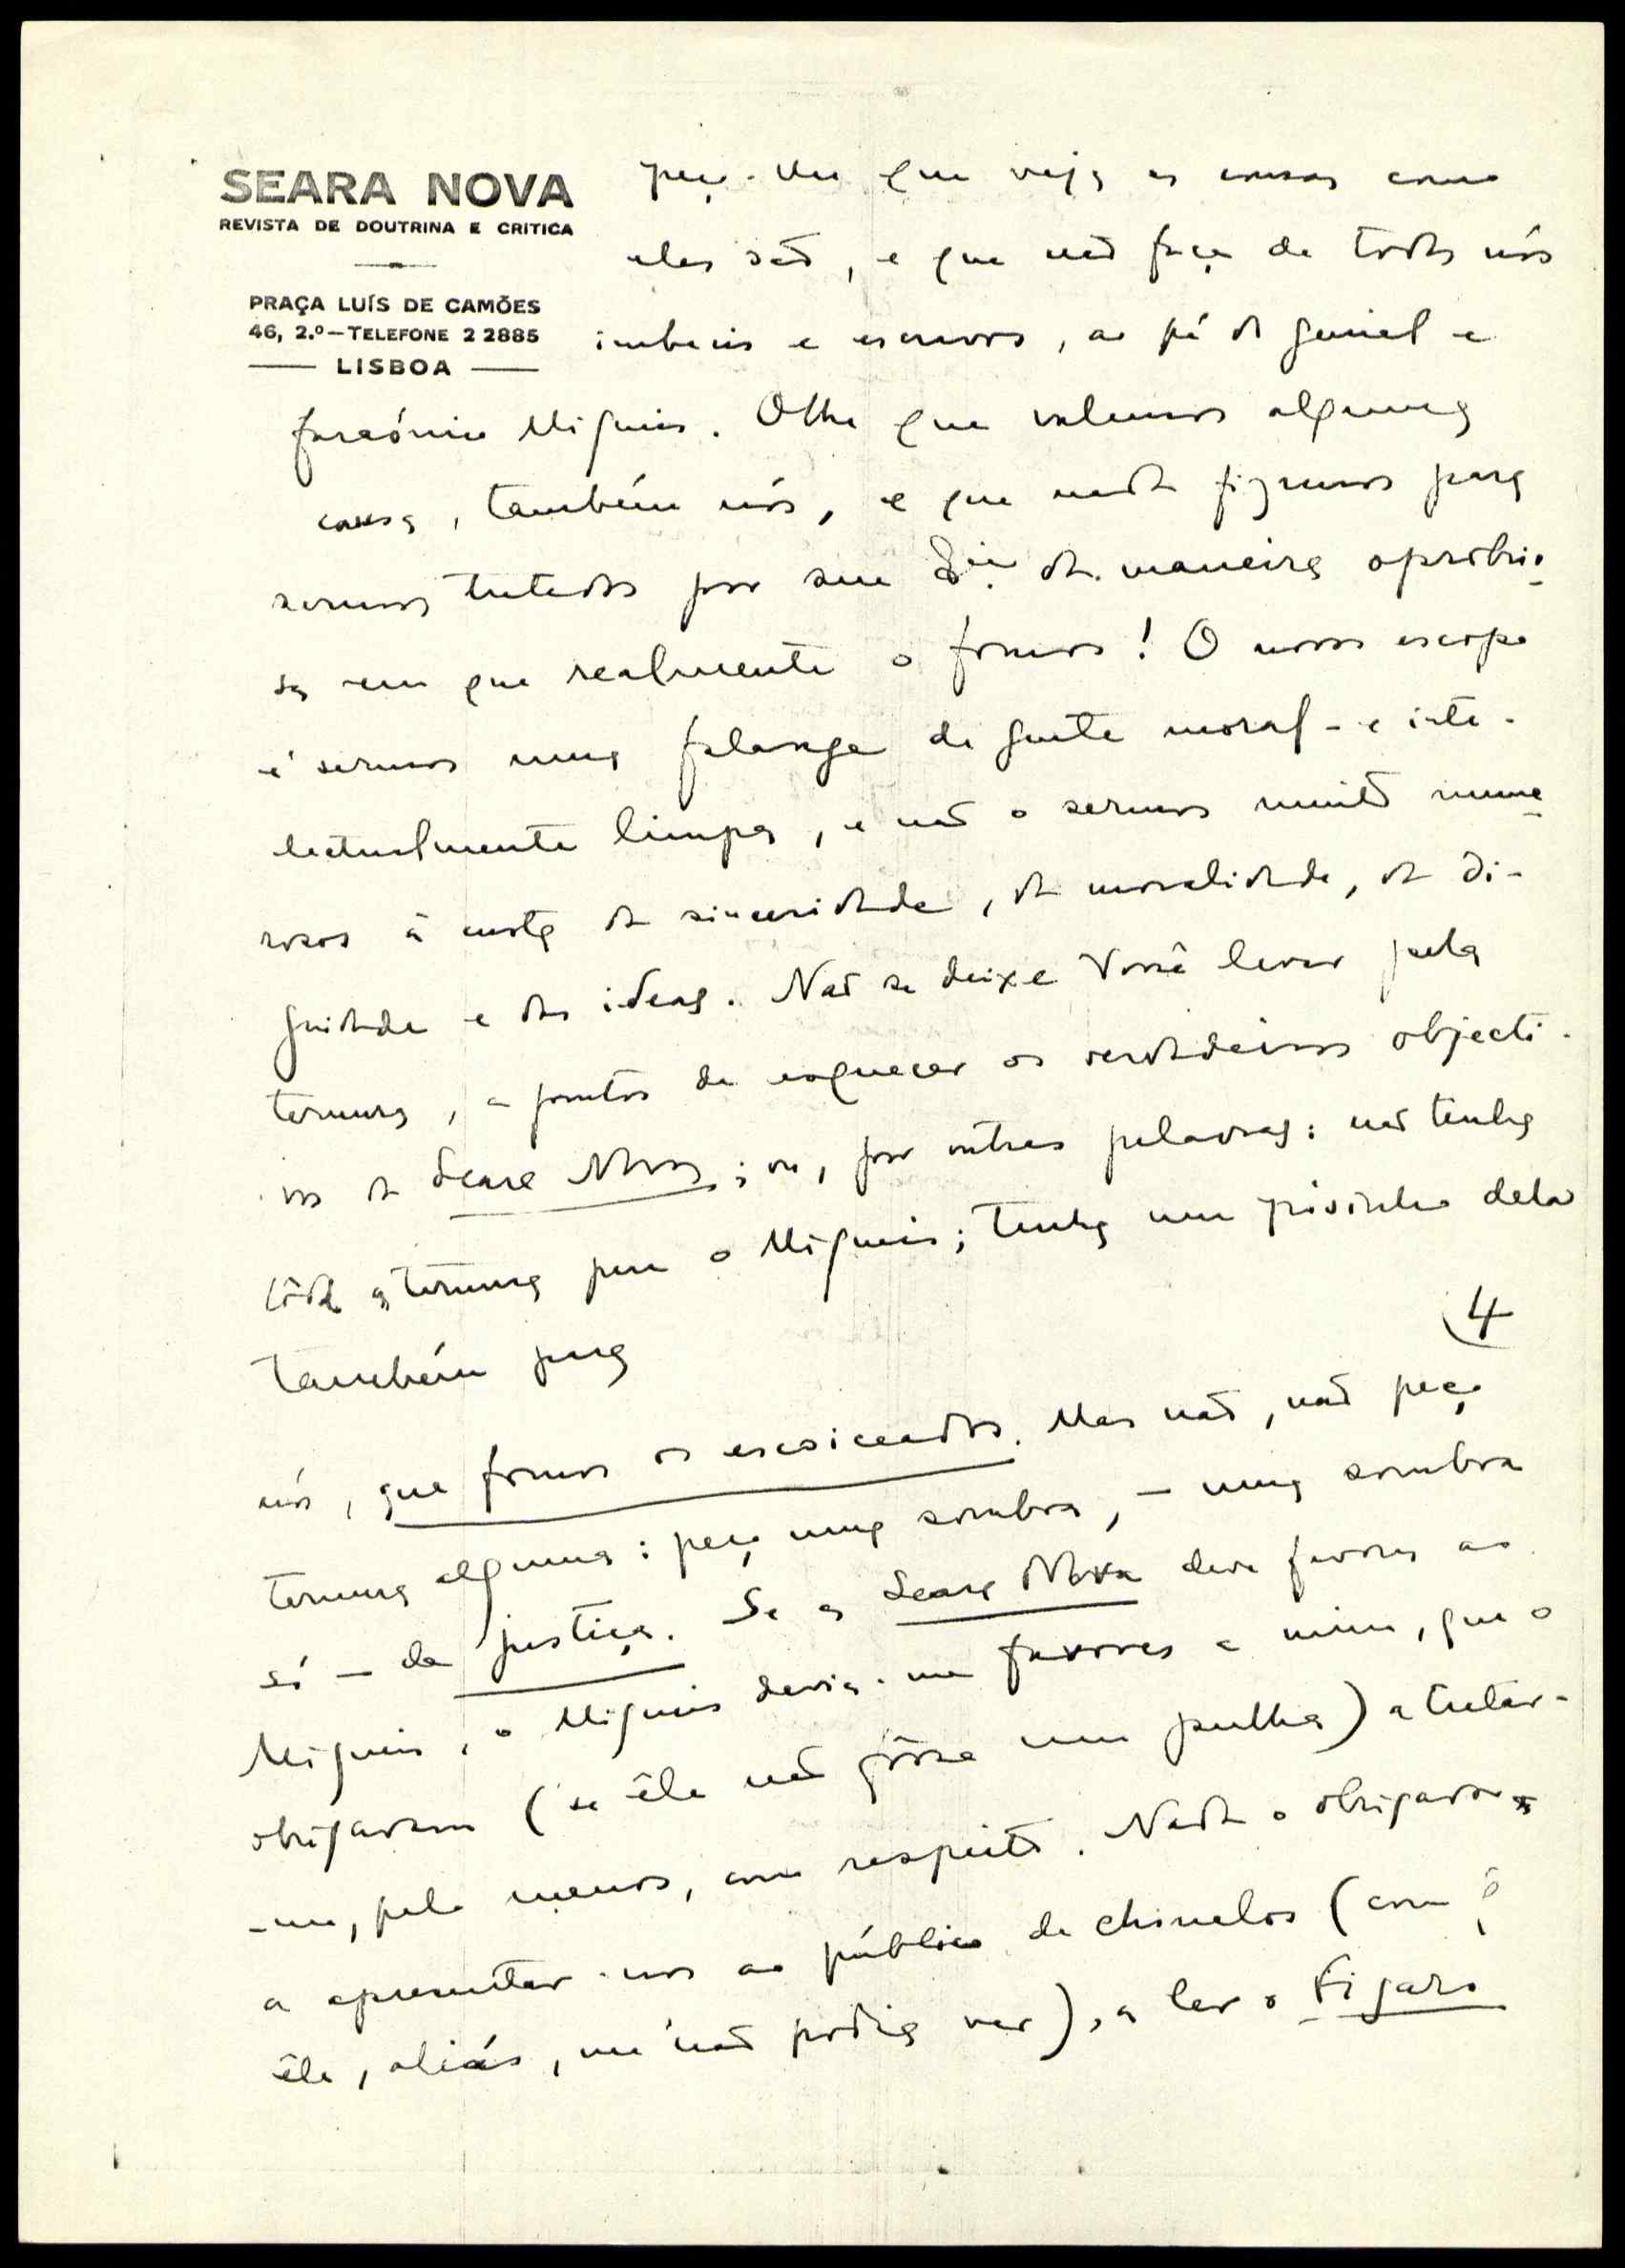 SEARA NOVA
REVISTA DE DOUTRINA E CRITICA
PRAÇA LUÍS DE CAMÕES
46, 2.º—TELEFONE 2 2885
LISBOA
peço-lhe que veja as cousas como
elas são, e que não faça de todos nós
imbecis e escravos, ao pé do genial e
faraónico Miguéis. Olhe que valemos alguma
cousa, também nós, e que nada fizemos para
sermos tratados por sua da maneira oprobrio-
sa em que realmente o fomos! O nosso escopo
é sermos uma falange de gente moral- e inte-
lectualmente limpa, e não o sermos muito nume-
rosos à custa da sinceridade, da moralidade, da di-
gnidade e das ideas. Não se deixe Você levar pela
ternura, a pontos de esquecer os verdadeiros objecti-
vos da Seara Nova; ou, por outras palavras: não tenha
tôda a ternura para o Miguéis; tenha um pèsinho dela
também para
4
nós, que fomos os escoiceados. Mas não, não peço
ternura alguma: peço uma sombra, – uma sombra
só – de justiça. Se a Seara Nova deve favores ao
Miguéis, o Miguéis devia-me favores a mim, que o
obrigavam (se êle não fôsse um pulha) a tratar-
-me, pelo menos, com respeito. Nada o obrigava
a apresentar-nos ao público de chinelos (com q
êle, aliás, me não podia ver), a ler o Figaro